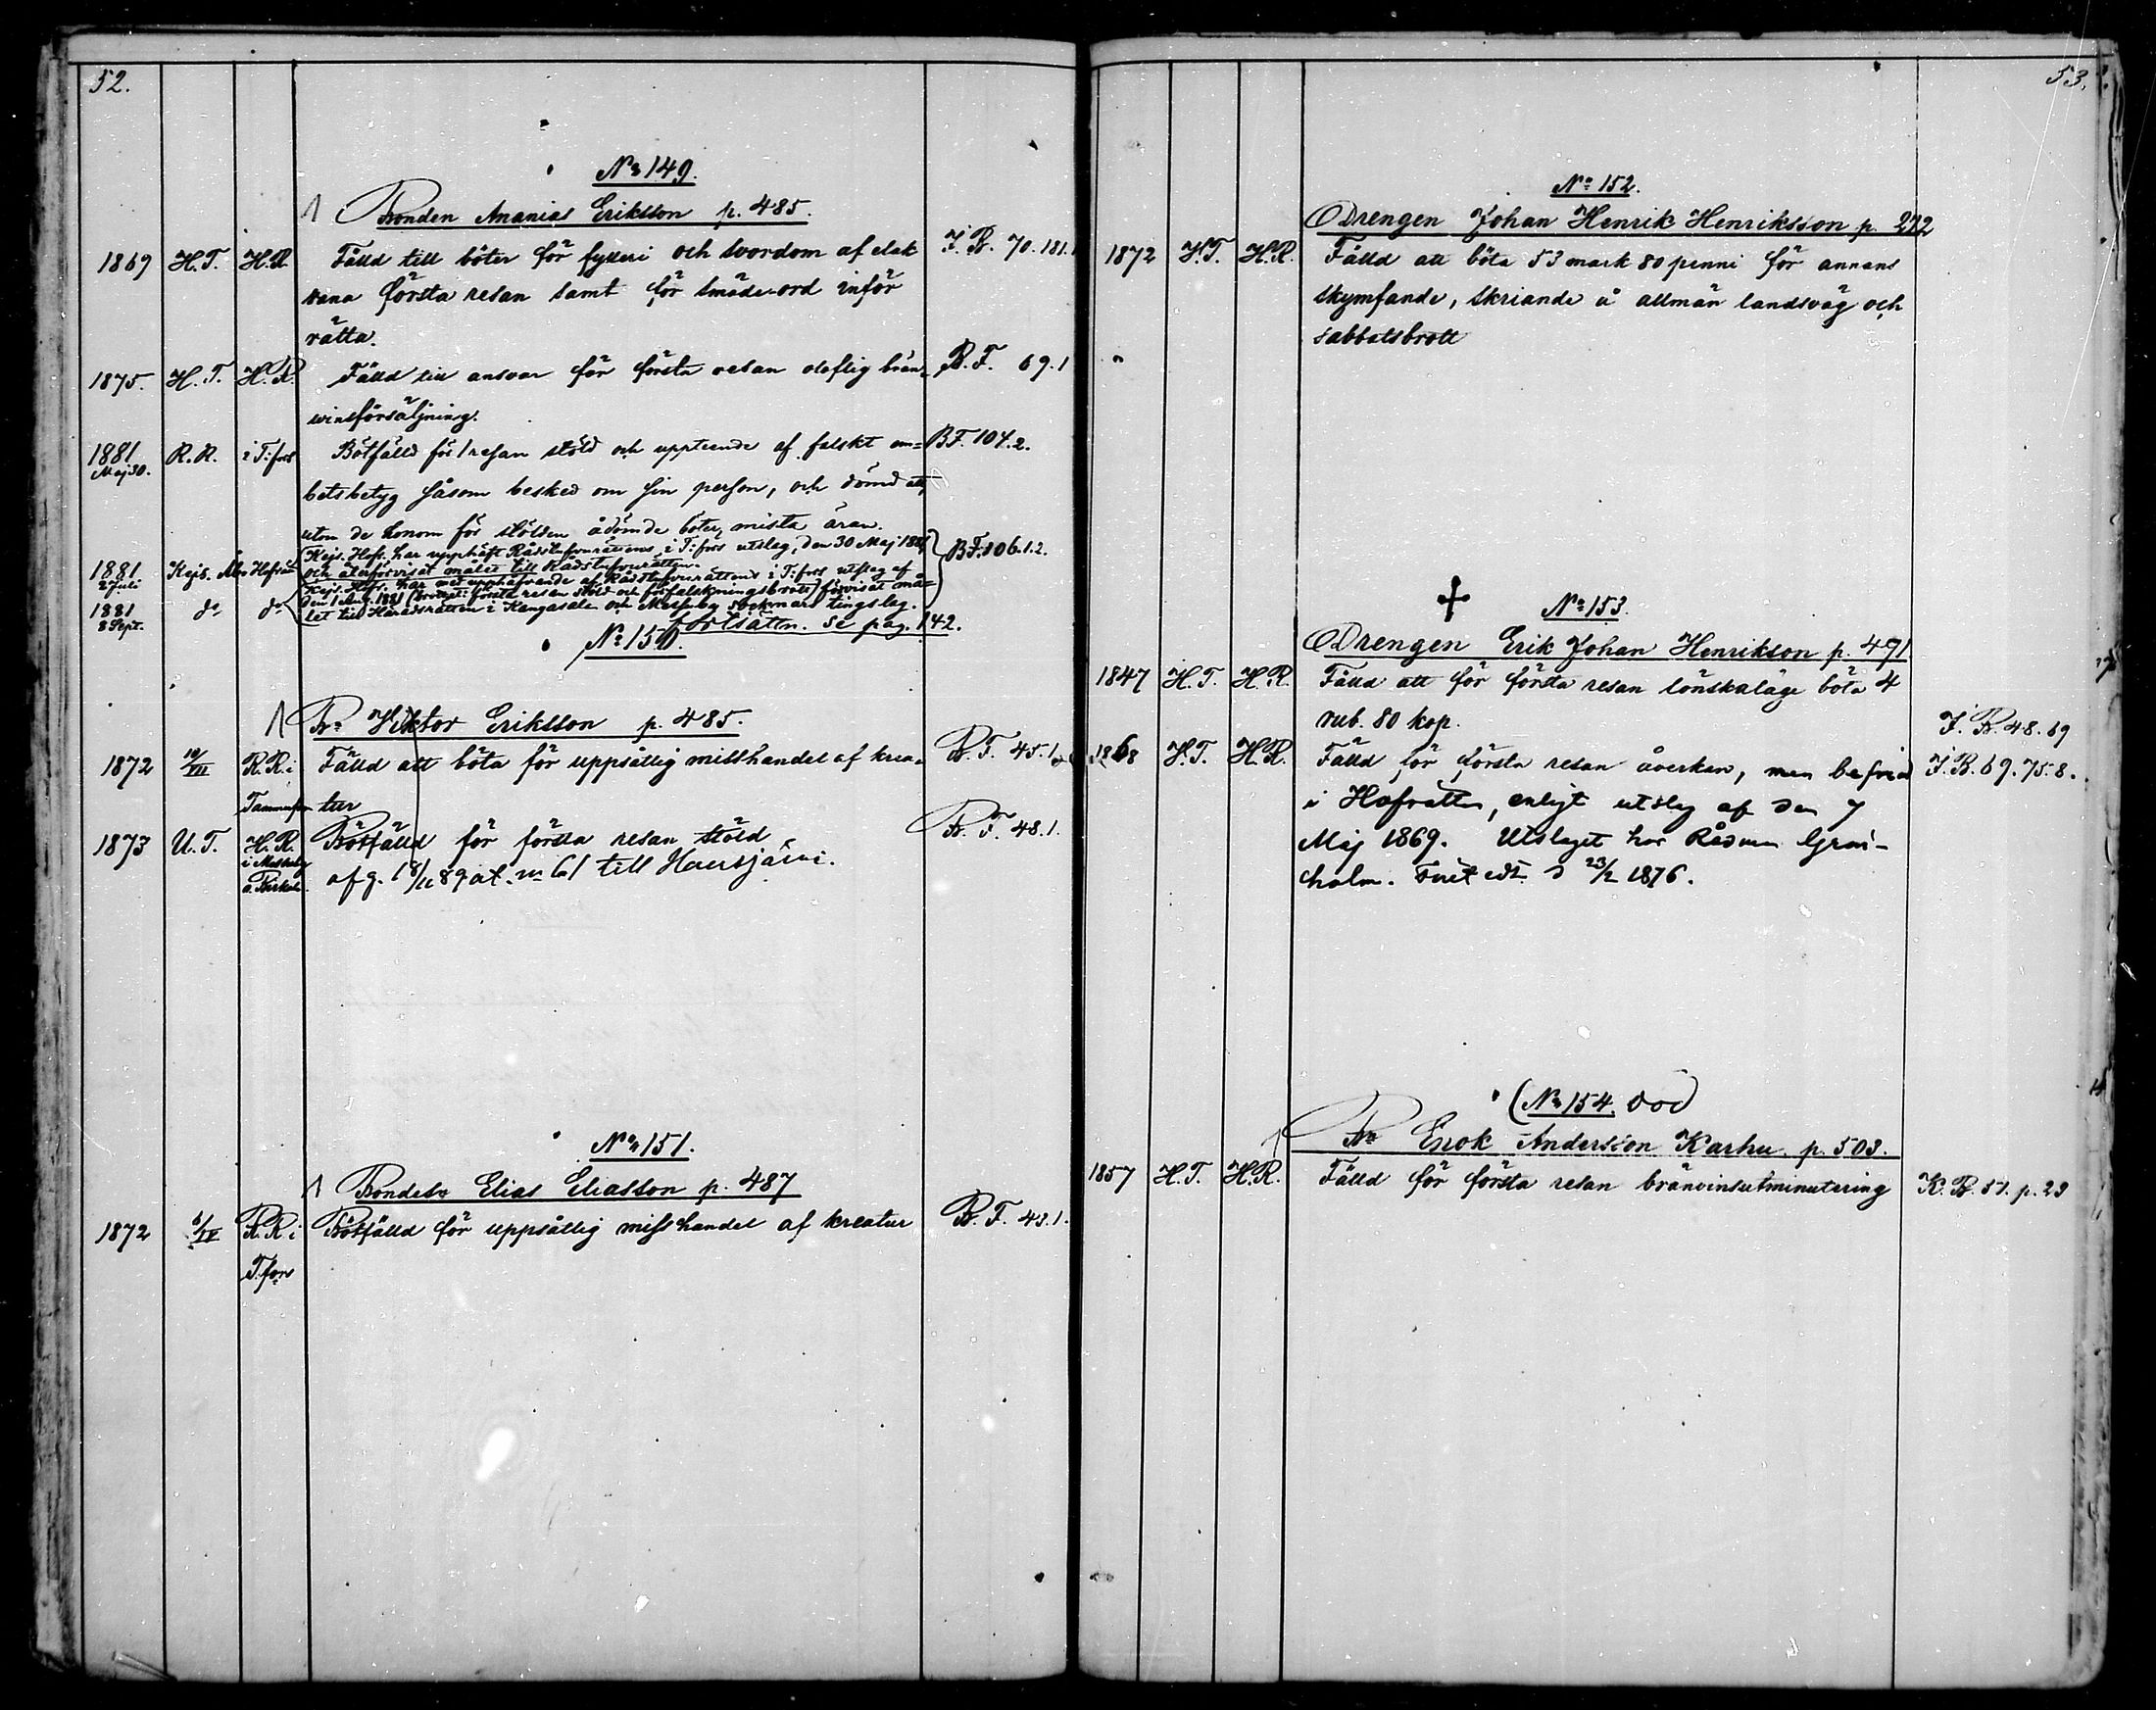 52.
No 149.
Bonden Ananias Eriksson p. 485.
1869 H.T. H.R. Fälld till böter för fylleri och svordom af elak I.B. 70.181.
vana första resan samt för smäde-ord inför
rätta.
1875. H.T. H.R. Fälld till ansvar för första resan olaflig brän- B.F. 69.1
vinsförsäljning.
1881 Maj 30. R.R. i T:fors Bötfälld för 1 resan stöld och uppteende af falskt em= BF. 104.2.
betsbetyg såsom besked om sin person, och dömd att,
utom de honom för stölden ådömde böter, mista äran.
1881 2 Juli Kejs. Åbo Hofrätt Kejs. Hofr. har upphäft Rådstufvurättens i T:fors utslag, den 30 Maj 1881 BF. 106.1.2.
och återförvisat målet till Rådstufvurätten.
1881 8 Sept. do do Kejs. Hofr. har med upphäfvande af Rådstufvurättens i T:fors utslag af
den 1 Aug. 1881 första resan stöld och förfalskningsbrott) förvisat må=
let till Häradsrätten i Kangasala och Messuby socknars tingslag.
fortsättn. se pag. 142.
No 150.
Br Viktor Eriksson p. 485.
1872 10/VII R.R. i Fälld att böta för uppsåtlig misshandel af krea- B.F. 45.1
Tammerfors tur
1873 U.T. H.R. Bötfälld för första resan stöld B.F. 48.1.
i Messuby
o. Birkala. afg. 18/11 89 at. no 61 till Hausjärvi.
No 151.
Bondeso Elias Eliasson p. 487
1872 6/IV R.R. i Bötfälld för uppsåtlig misshandel af kreatur B.F. 43.1.
T:fors
53.
No 152.
Drengen Johan Henrik Henriksson p. 272
1872 H.T. H.R. Fälld att böta 53 mark 80 penni för annans
skymfande, skriande å allmän landsväg och
sabbatsbrott
No 153.
Drengen Erik Johan Henrikson p. 491
1847 H.T. H.R. Fälld att för första resan lönskaläge böta 4
rub. 80 kop. I.B. 48.69
1868 H.T. H.R. Fälld för första resan åverkan, men befriad I.B. 69.75.8.
i Hofrätten, enligt utslag af den 7
Maj 1869. Utslaget hos Rådman Grön-
holm. d 23/2 1876.
(No 154. död
Br Enok Andersson Karhu. p. 503.
1857 H.T. H.R. Fälld för första resan bränvinsutminutering K.B. 57. p. 29